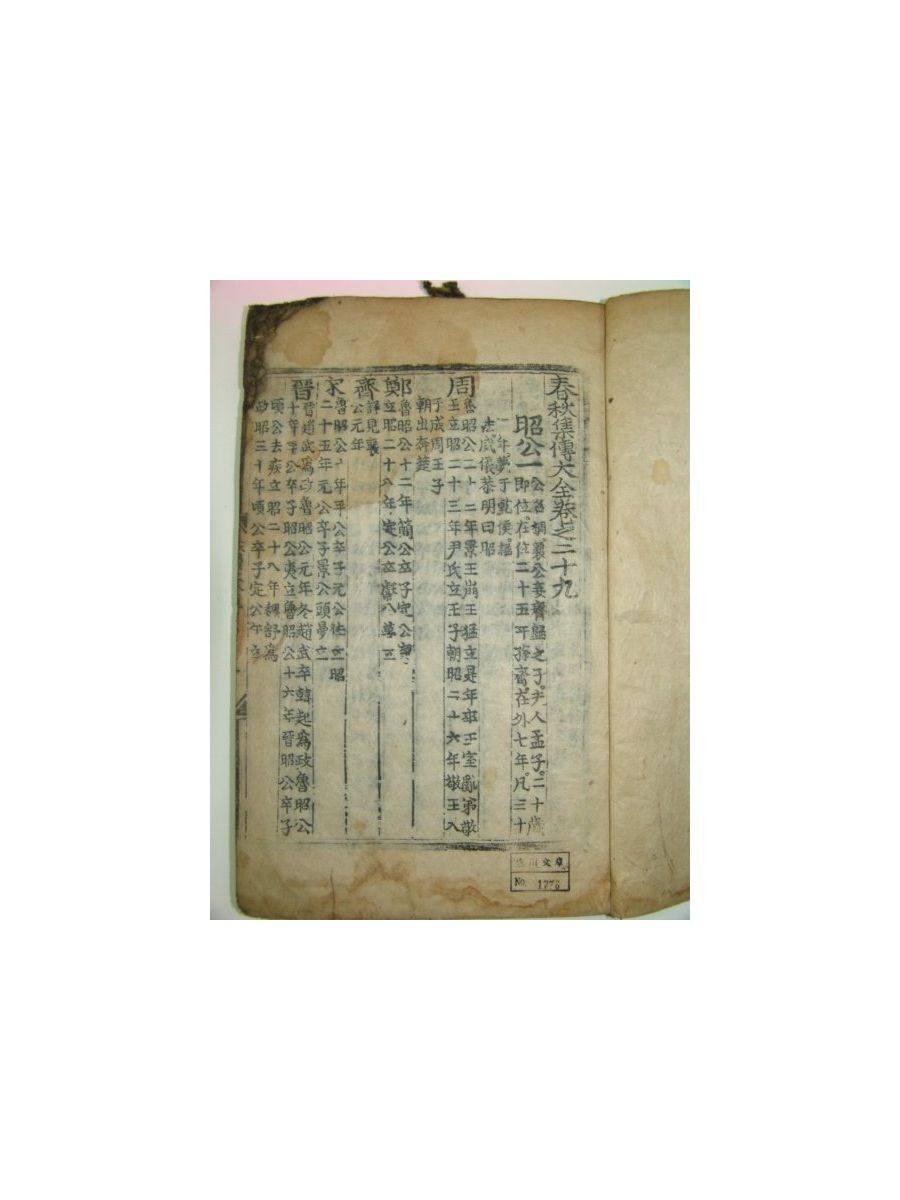 春秋集傳大全卷之二十九
昭公一
公名稠襄公妾齊歸之子夫人孟子二十歲
即位在位二十五年孫齊在外七年凡三十
二年薨于乾侯諡
法威儀恭明曰昭
周
魯昭公二十二年景王崩王猛立是年卒王室亂弟敬
王立昭二十三年尹氏立王子朝昭二十六年敬王入
于成周王子
朝出奔楚
鄭
魯昭公十二年簡公卒子定公寧
立昭二十八年定公卒子獻公蠆立
齊
詳見襄
公元年
宋
魯昭公十年平公卒子元公佐立昭
二十五年元公卒子景公頭曼立
晉
晉趙武爲政魯昭公元年冬趙武卒韓起爲政魯昭公
十年平公卒子昭公夷立魯昭公十六年晉昭公卒子
頃公去疾立昭二十八年魏舒爲
政昭三十年頃公卒子定公午立
文庫
No. 1776